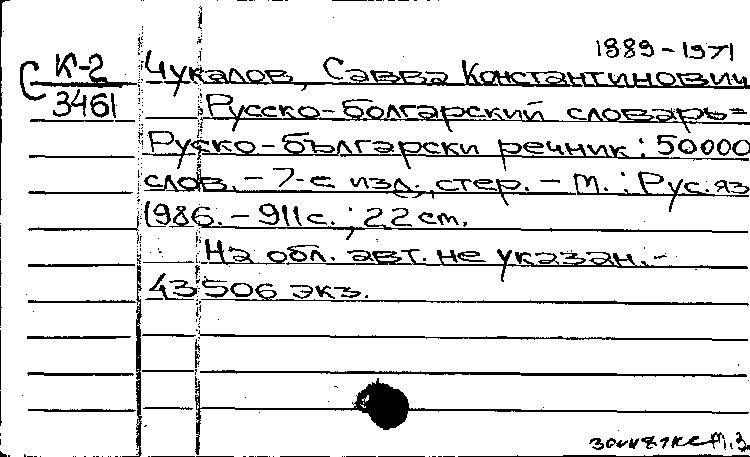 1889-1971
С К-2 Чукалов, Савва Константинович
3461 Русско-болгарский словарь=
Руско-български речник: 50000
слов. - 7-е изд., стер. - М.: Рус.яз
1986. - 911 с.; 22 см.
На обл. авт. не указан. -
43506 экз.